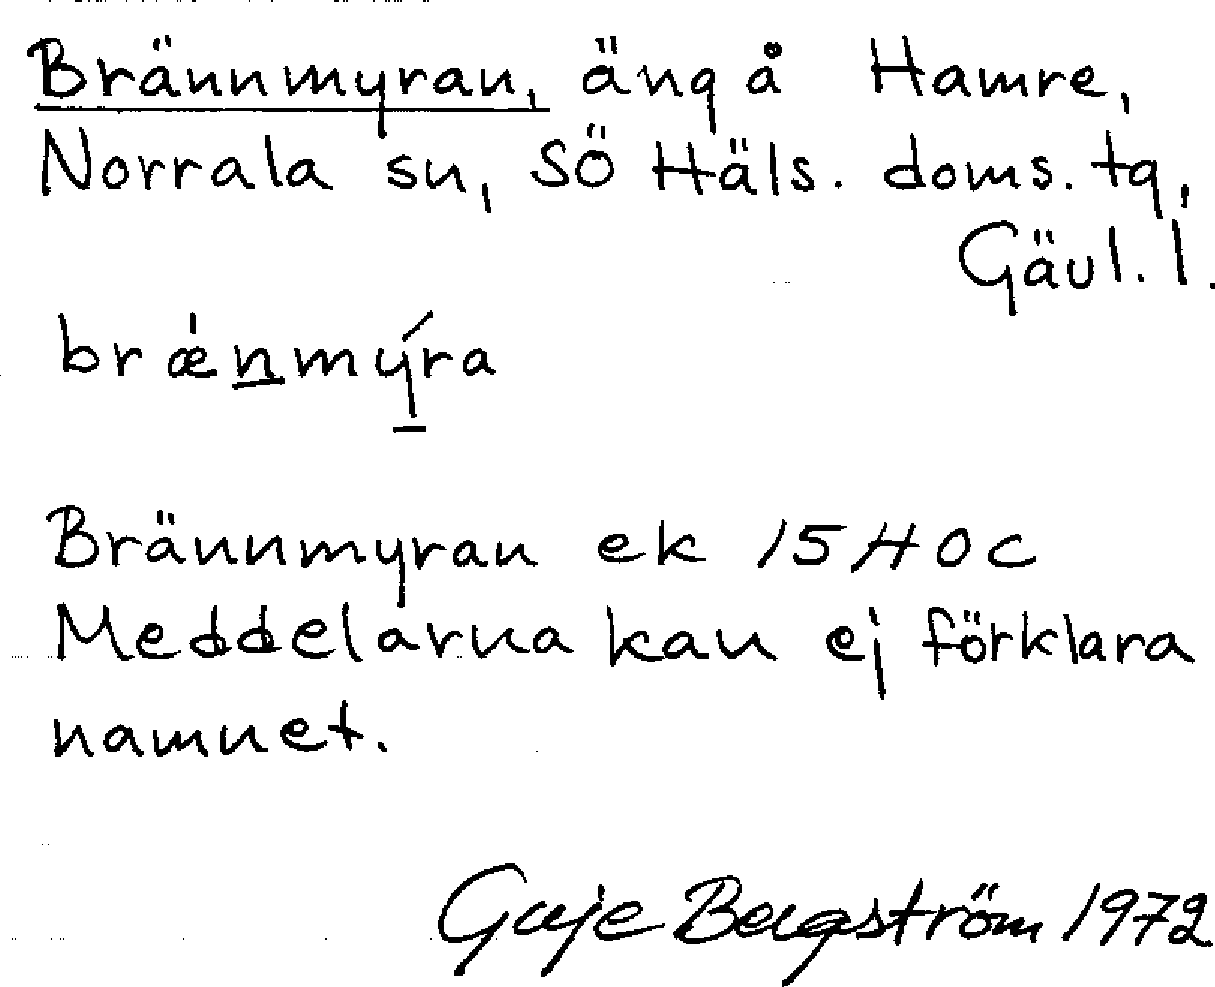 Brännmyran, äng å Hamre,
Norrala sn, SÖ Häls. doms. tg,
Gävl. l.
brǽnmýra
Brännmyran ek 15H0c
Meddelarna kan ej förklara
namnet.
Bergström 1972